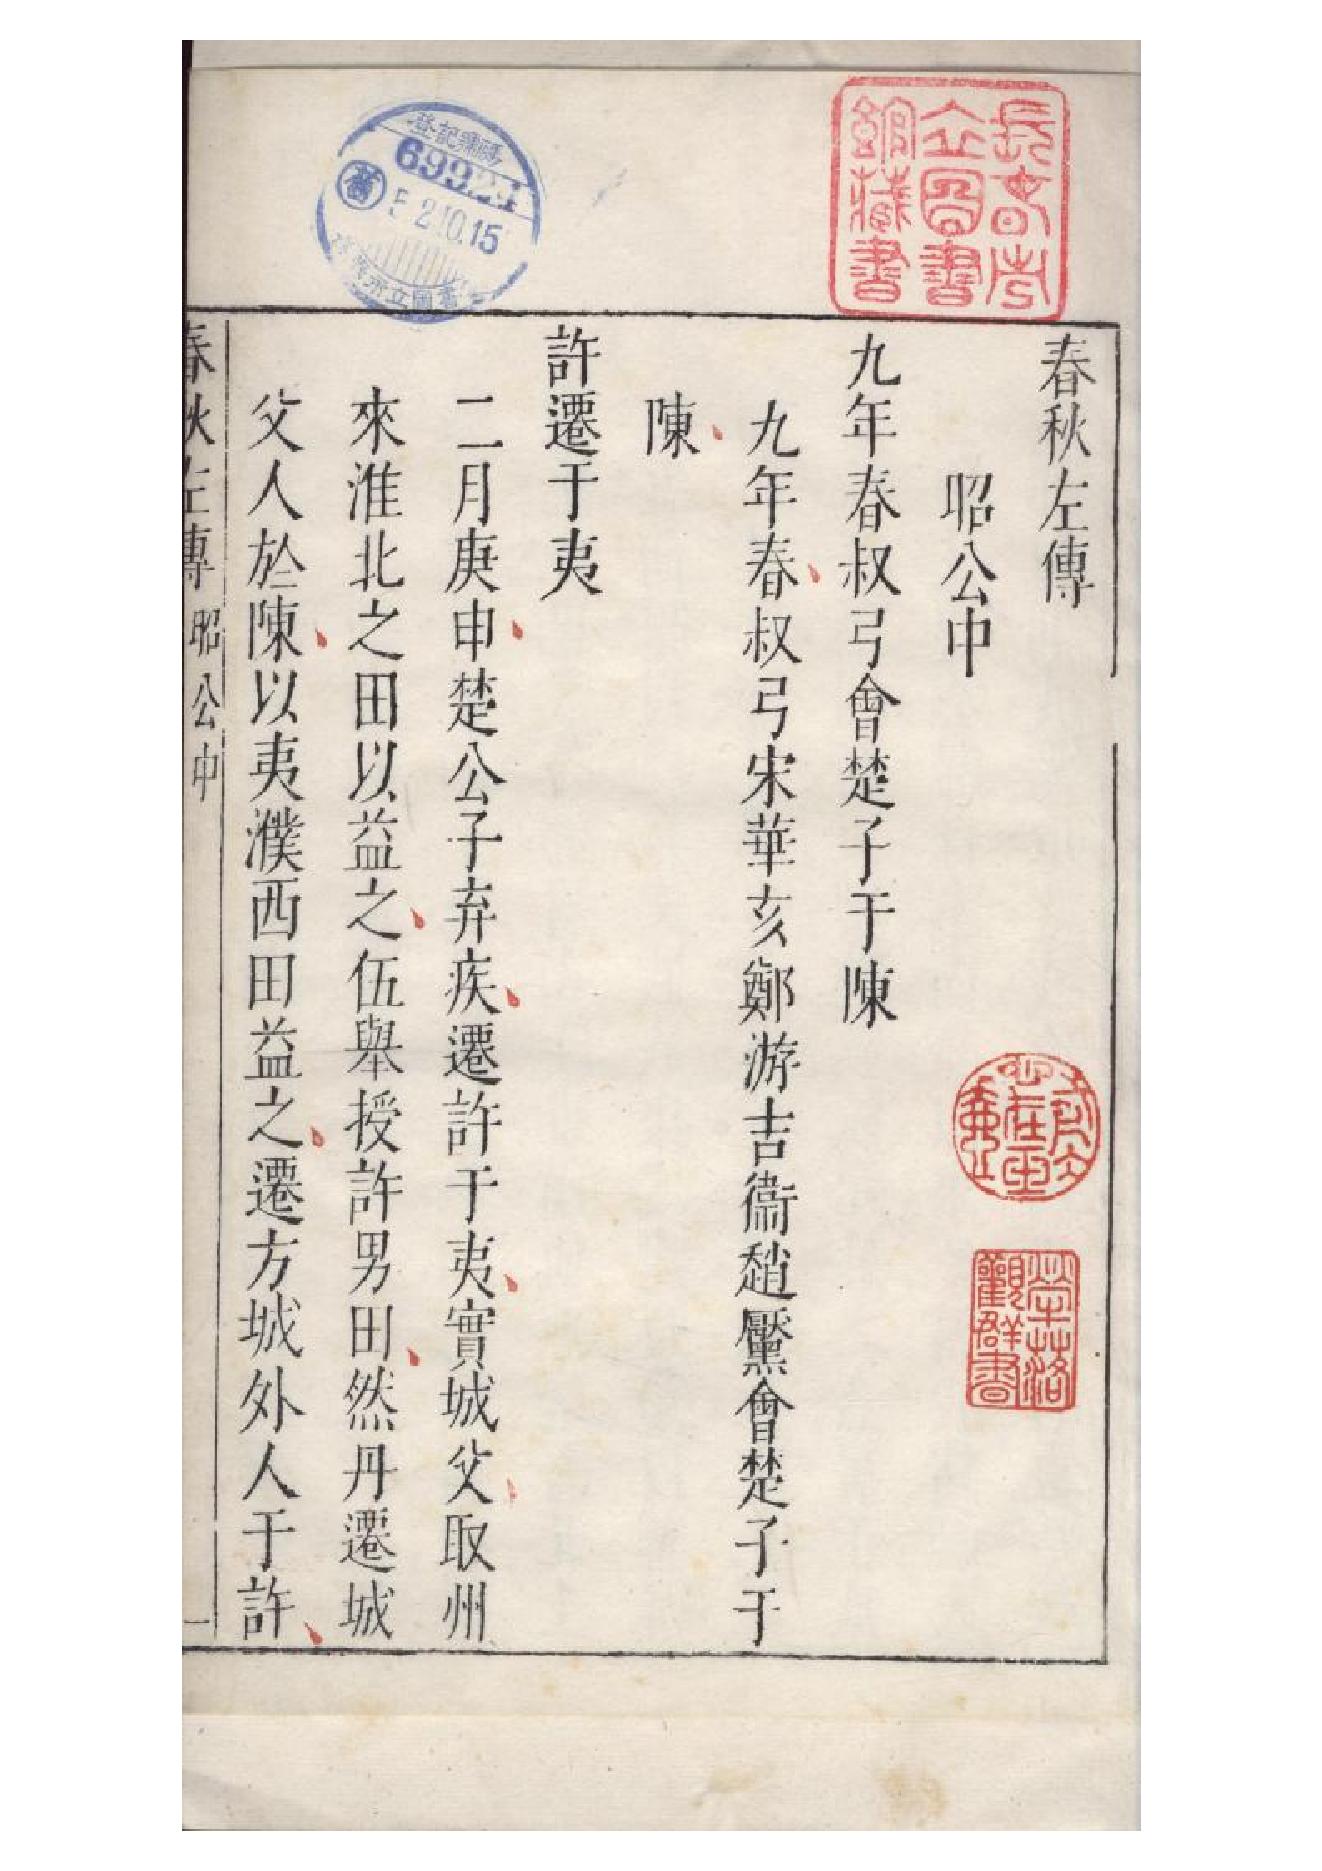 春秋左傳
昭公中
九年春叔弓會楚子于陳
九年春叔弓宋華亥鄭游吉衞趙黶會楚子于
陳
許遷于夷
二月庚申楚公子弃疾遷許于夷實城父取州
來淮北之田以益之伍舉授許男田然丹遷城
父人於陳以夷濮西田益之遷方城外人于許
春秋左傳 昭公中 一
長春市立圖書館藏書
登記號碼
舊
52.10.15
市立圖書
觀群書